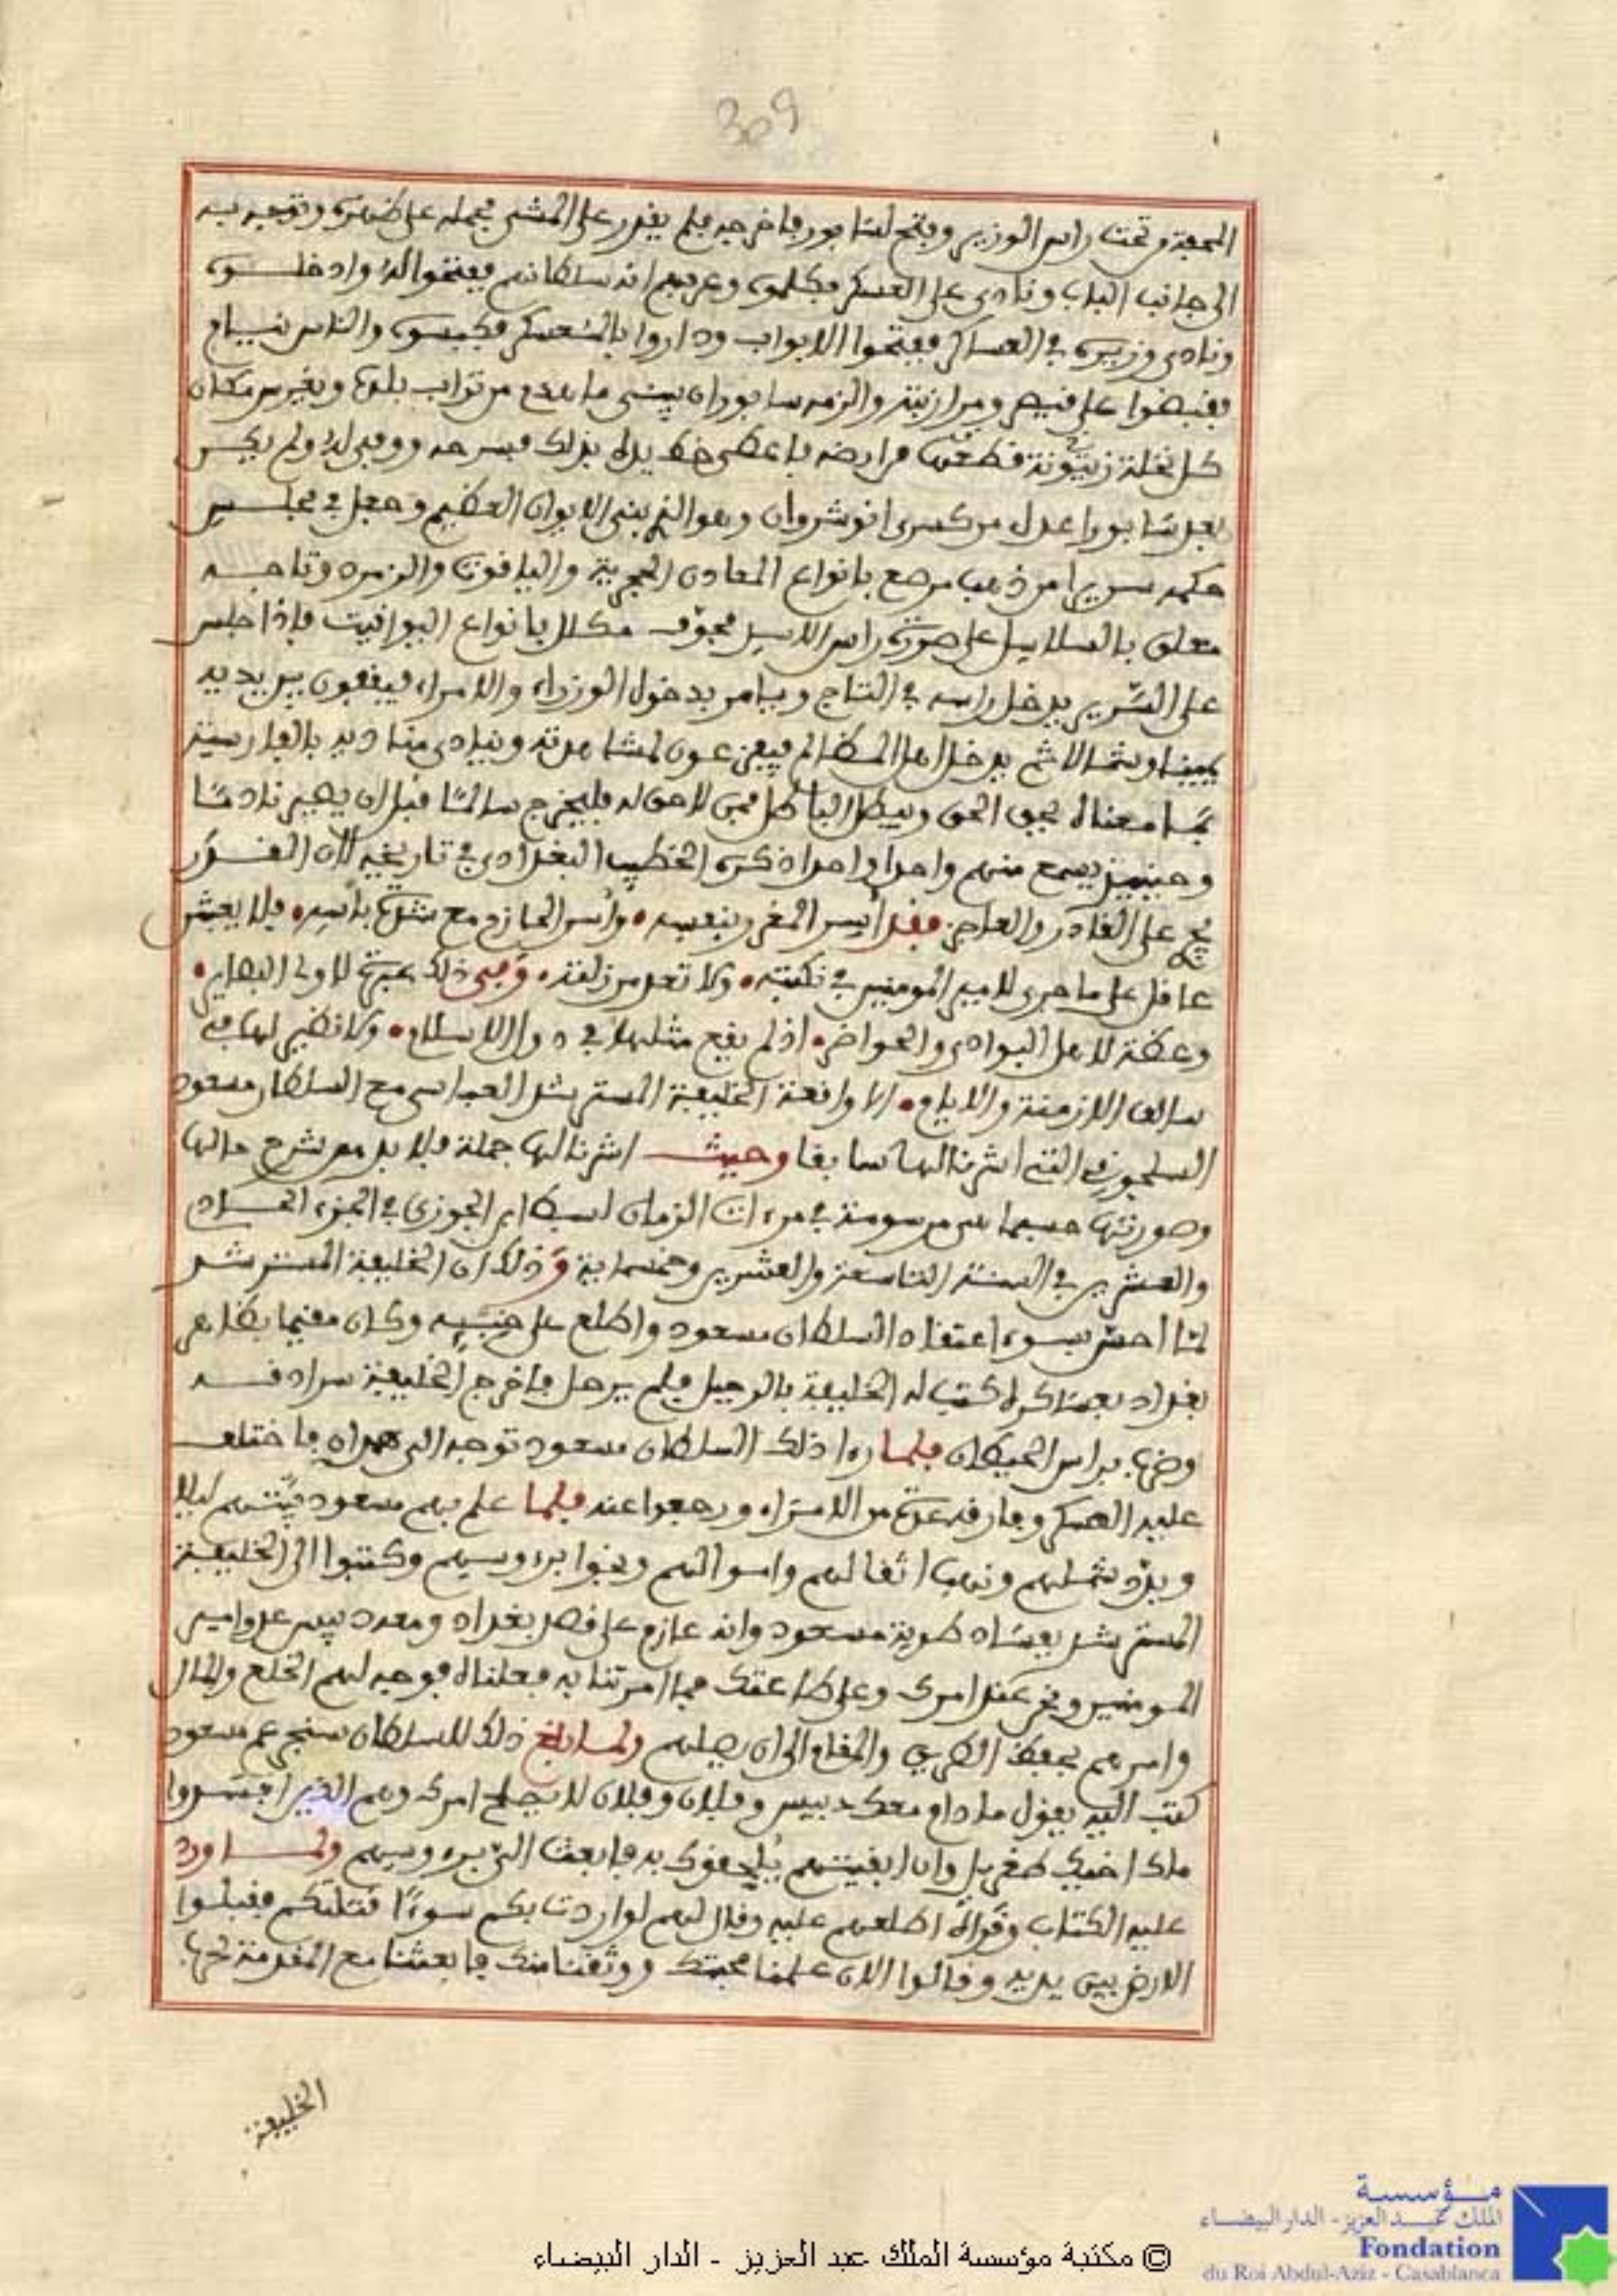 309
المحفة وتحت راس الوزير وفتح لسابور فاخرجه فلم يقدر على المشي فحمله على ظهره وتوجه به
الى جانب الباب ونادى على العسكر فكلموه وعرفهم انه سلطانهم ففتحوا له وادخلوه
ونادى وزيره في العساكر ففتحوا الابواب وداروا بالمعسكر فكبسوه والناس نيام
فقبضوا على قيصر ومرازبته والزمه سابور ان يبني ما هدم من تراب بلده ويغرس مكان
كل نخلة زيتونة قطعت من ارضه فاعطى خط يده بذلك فسرحه ووفى له ولم يكن
بعد سابور اعدل من كسرى انوشروان وهو الذي بنى الايوان العظيم وجعل في مجلس
حكمه سريرا من ذهب مرصع بانواع المعادن الحجرية والياقوت والزمرد وتاجه
معلق بالسلاسل على صورة راس الاسد مجوف مكلل بانواع اليواقيت فاذا جلس
على السرير يدخل راسه في التاج ويامر بدخول الوزراء والامراء فيقفون بين يديه
يمينا وشمالا ثم يدخل اهل المظالم فيفزعون لمشاهدته وينادي مناديه بالفارسية
بما معناه يحق الحق ويبطل الباطل فمن لا حق له فليخرج سالما قبل ان يصير نادما
وحينئذ يسمع منهم واحدا واحدا ذكره الخطيب البغدادي في تاريخه لان الغدر
على الغادر والعاجز فقد ايس المغرور بنفسه • وانس الحازم مع شدة باسه • فلا يعيش
عاقل على ما جرى لامير المومنين في نكبته • ولا تعد من زلته • وفي ذلك عبرة لاولى البصاير •
وعظة لاهل البوادي والحواضر • اذ لم يقع مثلها في دول الاسلام • ولا نظير لها في
سالف الازمنة والايام • الا واقعة الخليفة المسترشد العباسي مع السلطان مسعود
السلجوقي التي اشرنا اليها سابقا وحيث اشرنا اليها جملة فلا بد من شرح حالها
وصورتها حسبما هي مرسومة في مرءات الزمان لسبط ابن الجوزي في الجزء الحادي
والعشرين في السنة التاسعة والعشرين وخمسماية وذلك ان الخليفة المسترشد
لما احس بسوء اعتقاد السلطان مسعود واطلع على خبثه وكان مقيما بظاهر
بغداد بعساكره كتب له الخليفة بالرحيل فلم يرحل فاخرج الخليفة سرادقه
وضربها براس الحيطان فلما راا ذلك السلطان مسعود توجه الى همدان فاختلف
عليه العسكر وفارقه عدة من الامراء ورجعوا عنه فلما علم بهم مسعود بيتهم ليلا
وبدد شملهم ونهب اثقالهم واموالهم ونجوا برءوسهم وكتبوا الى الخليفة
المسترشد بفساد طوية مسعود وانه عازم على قصد بغداد ومعه دبيس عدو امير
المومنين ونحن عند امرك وعلى طاعتك فما امرتنا به فعلناه فوجه لهم الخلع والمال
وامرهم بحفظ الطريق والمقام الى ان يصلهم ولما بلغ ذلك للسلطان سنجر عم مسعود
كتب اليه يقول ما دام معك دبيس وفلان وفلان لا يصلح امرك وهم الذين افسدوا
ملك اخيك طغريل وان ابقيتهم يلحقوك به فابعث الي برءوسهم ولما ورد
عليه الكتاب وقراه اطلعهم عليه وقال لهم لو اردت بكم سوءا قتلتكم فقبلوا
الارض بين يديه وقالوا الان علمنا محبتك ووثقنا منك فابعثنا مع المقدمة لحرب
الخليفة
مؤسسة
الملك عبد العزيز - الدار البيضاء
Fondation
du Roi Abdul-Aziz - Casablanca
© مكتبة مؤسسة الملك عبد العزيز - الدار البيضاء